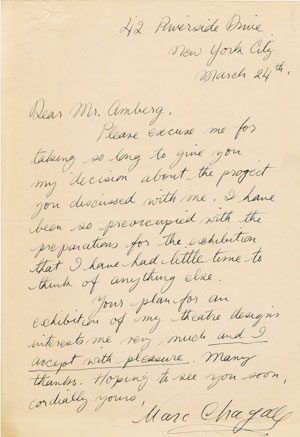 42 Riverside Drive
New York City
March 24th.
Dear Mr. Amberg,
Please excuse me for
taking so long to give you
my decision about the project
you discussed with me. I have
been so preoccupied with the
preparations for the exhibition
that I have had little time to
think of anything else.
Your plan for an
exhibition of my theatre designs
interests me very much and I
accept with pleasure. Many
thanks. Hoping to see you soon,
cordially yours,
Marc Chagall